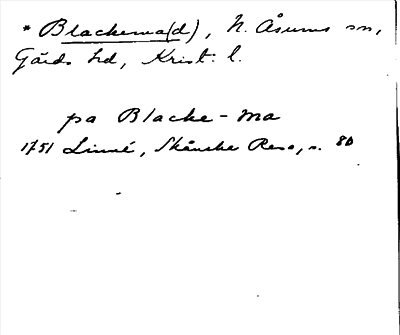 * Blackema(d), N. Åsums sn,
Gärds hd, Krist. l.
pa Blacke-ma
1751 Linné, Skånska Resa, s. 80